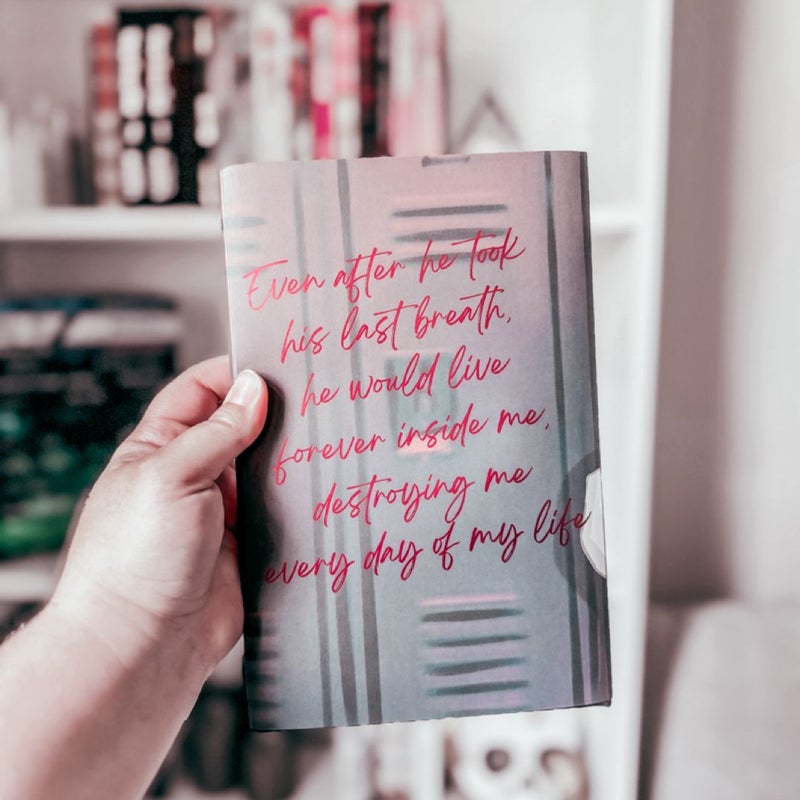 Even after he took
his last breath,
he would live
forever inside me,
destroying me
every day of my life